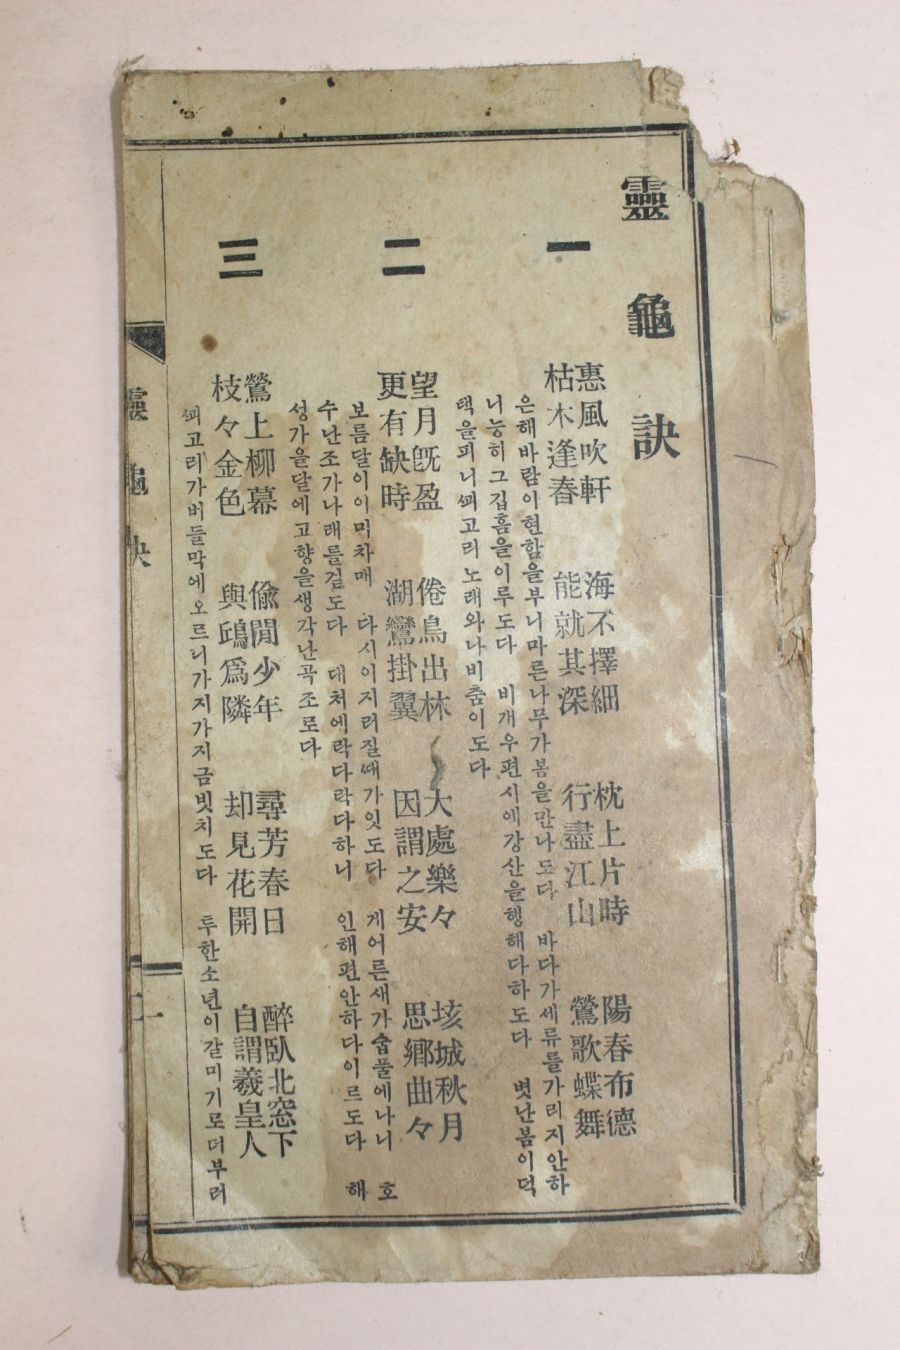 靈龜訣
一
惠風吹軒 海不擇細 枕上片時 陽春布德
枯木逢春 能就其深 行盡江山 鶯歌蝶舞
은해바람이현함을부니마른나무가봄을만나도다 바다가세류를가리지안하
니능히그깁흠을이루도다 비개우편시에강산을행해다하도다 볏난봄이덕
택을피니꾀고리노래와나비춤이도다
二
望月旣盈 倦鳥出林 大處樂々 垓城秋月
更有缺時 湖鸞掛翼 因謂之安 思鄉曲々
보름달이이믜차매 다시이지러질때가잇도다 게어른새가숩풀에나니 호
수난조가나래를걸도다 대처에락다락다하니 인해편안하다이르도다 해
성가을달에고향을생각난곡조로다
三
鶯上柳幕 偸閒少年 尋芳春日 醉臥北窓下
枝々金色 與鴟爲隣 却見花開 自謂羲皇人
꾀고리가버들막에오르니가지가지금빗치도다 투한소년이갈미기로더부러
靈龜訣
二